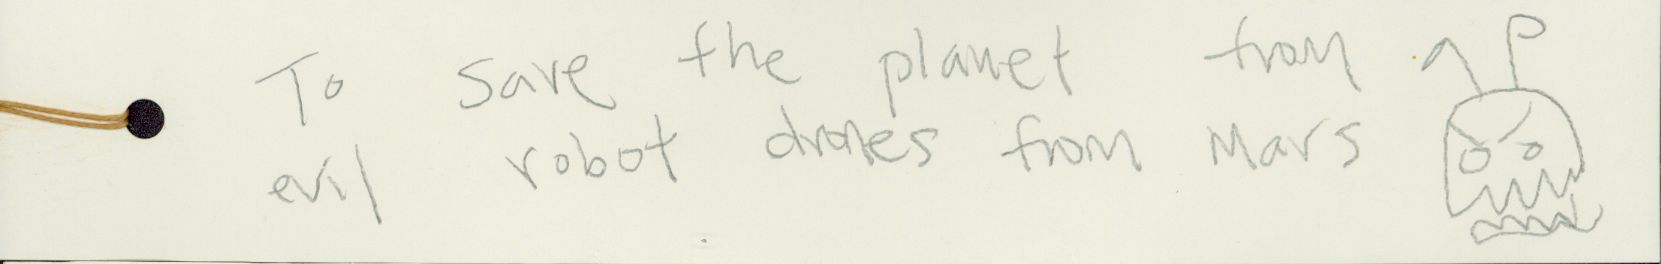 To save the planet from
evil robot drones from Mars